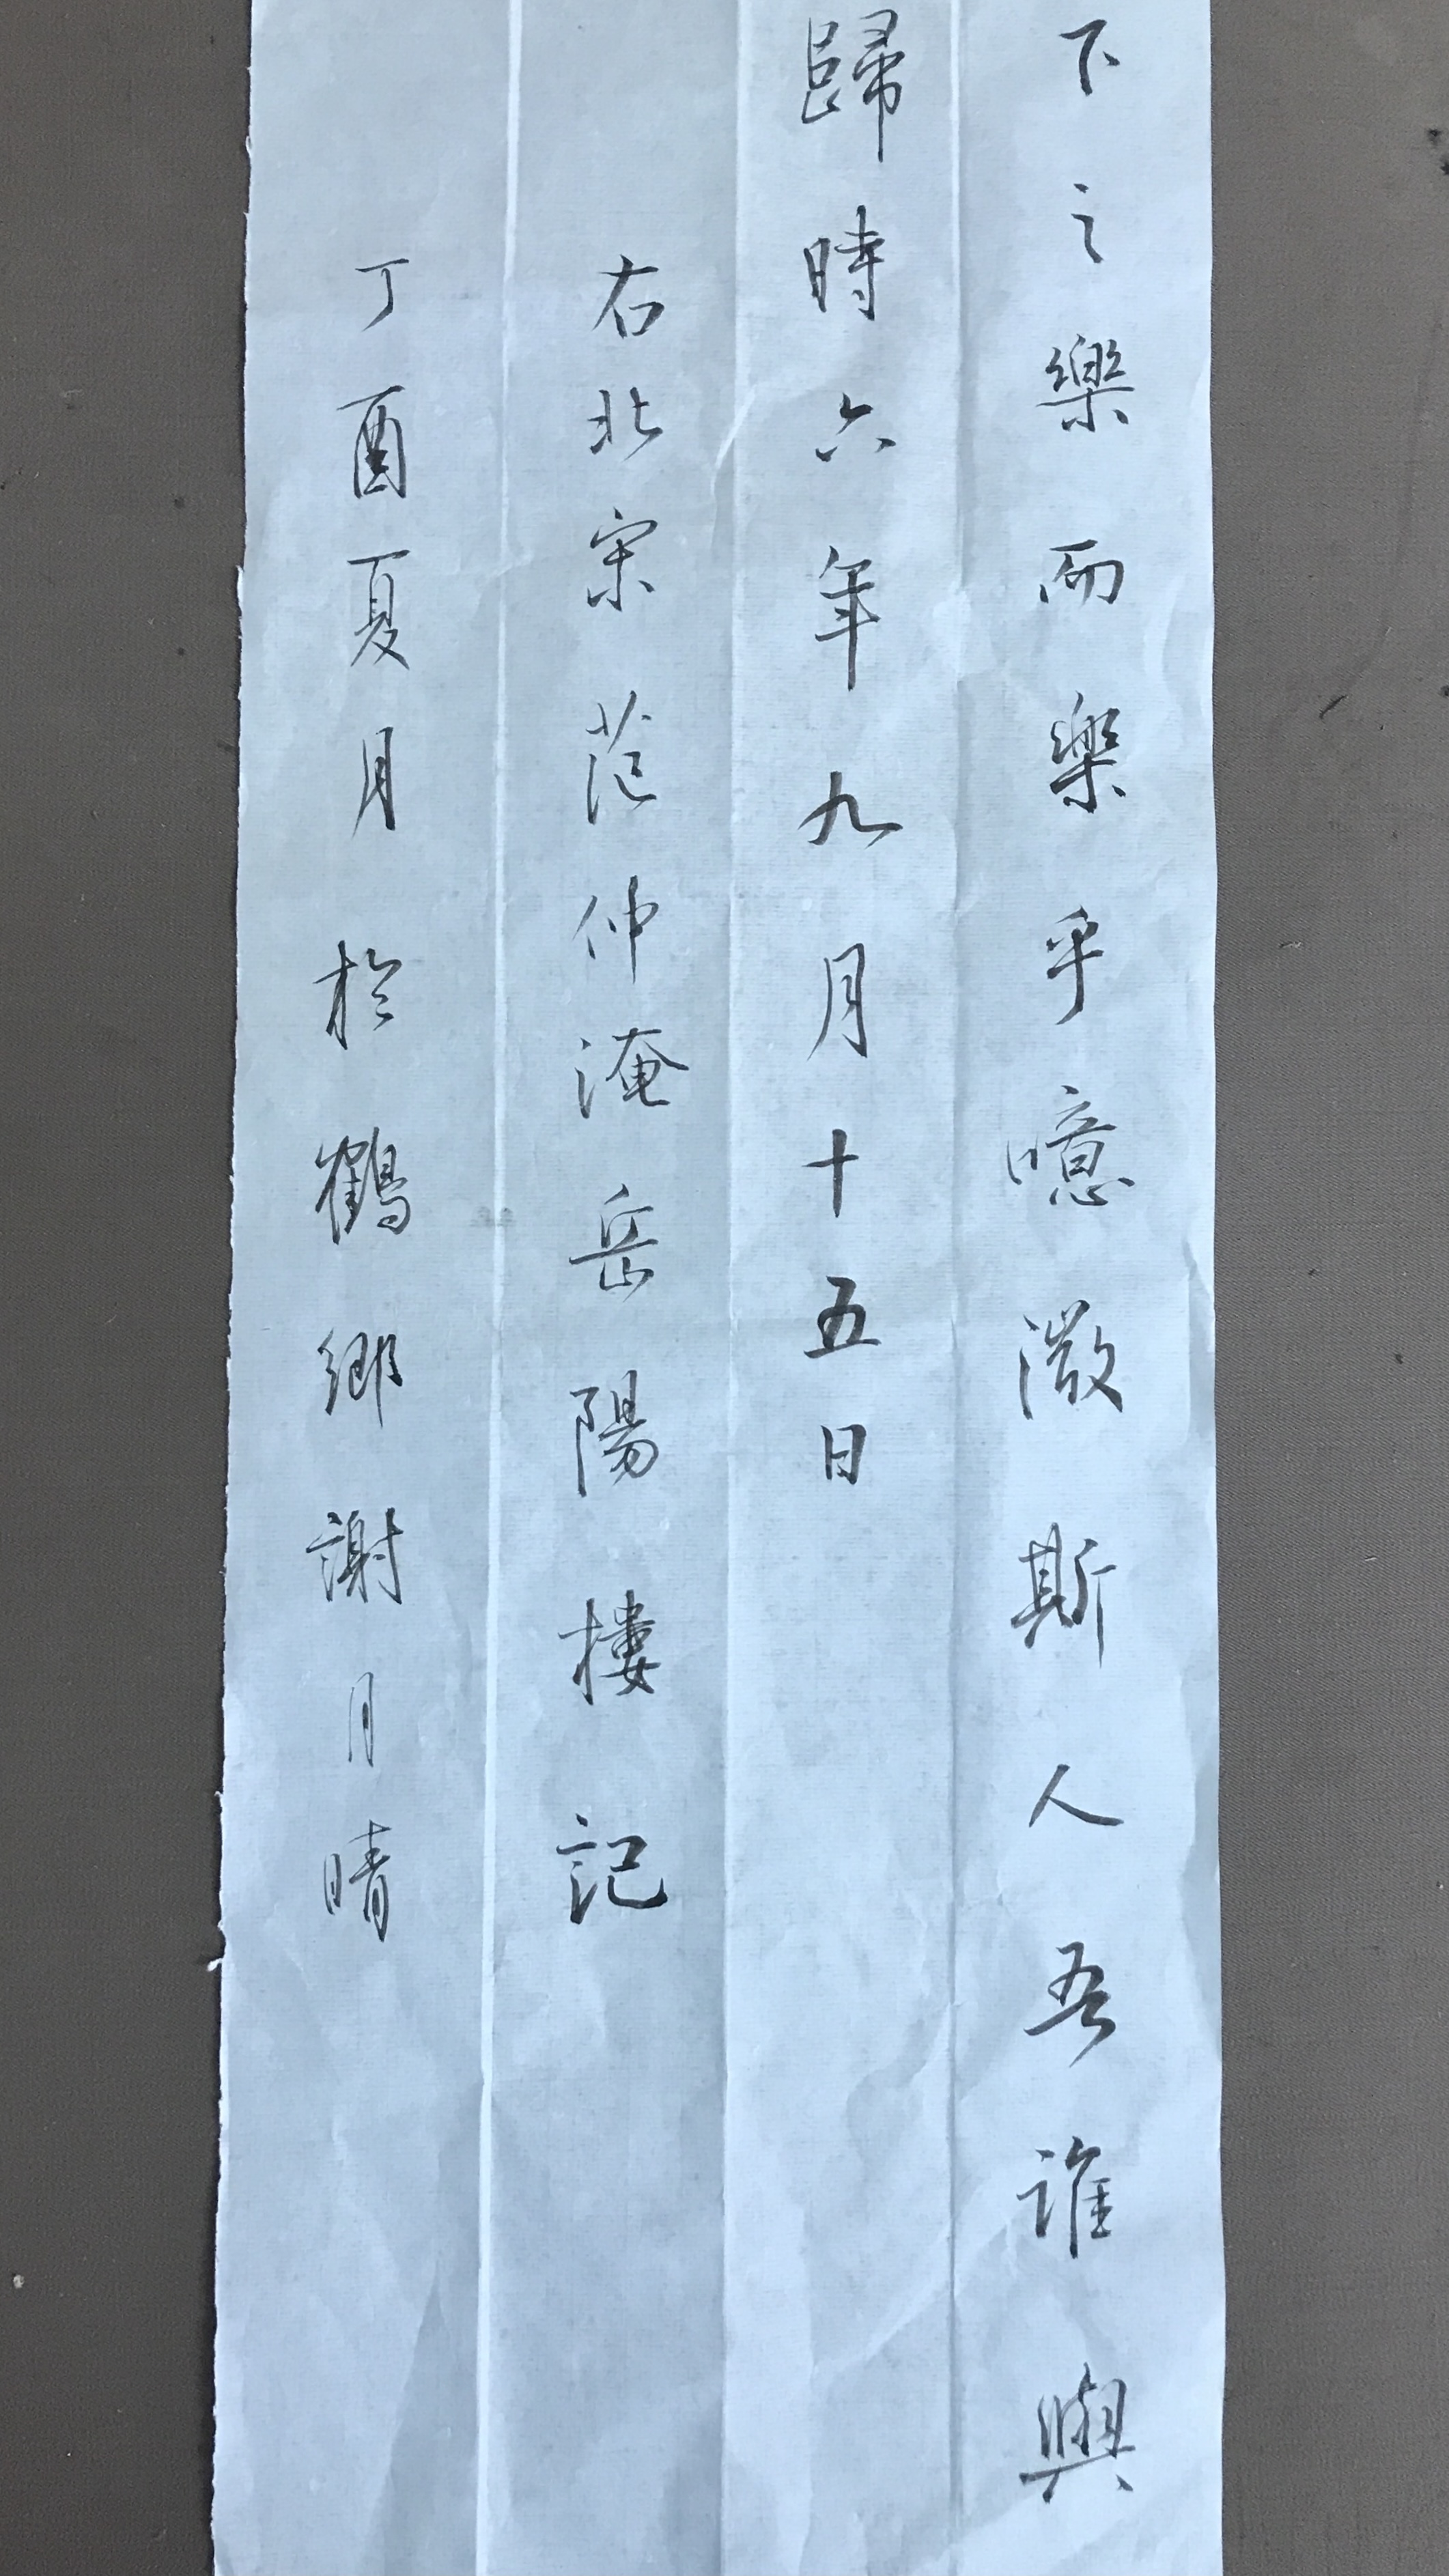 下之樂而樂乎噫微斯人吾誰與
歸時六年九月十五日
右北宋范仲淹岳陽樓記
丁酉夏月於鶴鄉謝月晴